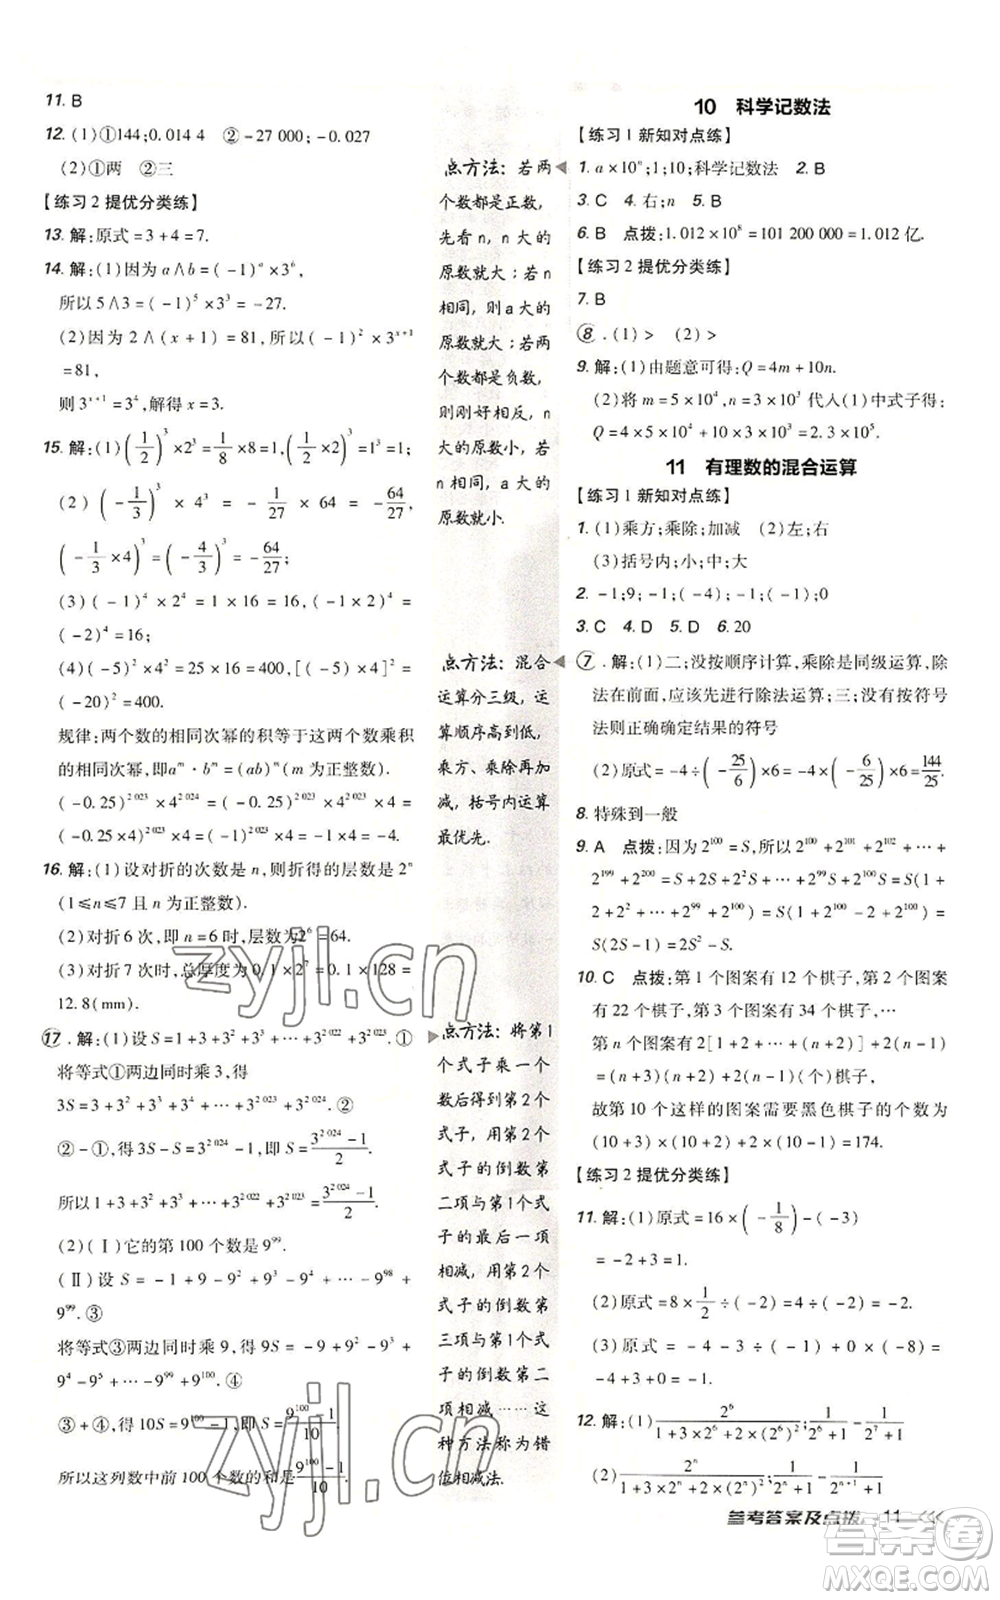 11. B
12. (1)①144;0.014 4　②-27 000;-0.027
(2)①两　②三
【练习2 提优分类练】
13. 解:原式=3+4=7.
14. 解:(1)因为a∧b=(-1)^a×3^b,
所以5∧3=(-1)^5×3^3=-27.
(2)因为2∧(x+1)=81,所以(-1)^2×3^{x+1}
=81,
则3^{x+1}=3^4,解得x=3.
15. 解:(1)(1/2)^3×2^3=1/8×8=1,(1/2×2)^3=1^3=1;
(2)(-1/3)^3×4^3=-1/27×64=-64/27,
(-1/3×4)^3=(-4/3)^3=-64/27;
(3)(-1)^4×2^4=1×16=16,(-1×2)^4=
(-2)^4=16;
(4)(-5)^2×4^2=25×16=400,[(-5)×4]^2=
(-20)^2=400.
规律:两个数的相同次幂的积等于这两个数乘积
的相同次幂,即a^m·b^m=(ab)^m(m为正整数).
(-0.25)^{2 023}×4^{2 024}=(-0.25)^{2 023}×4^{2 023}×4=
(-0.25×4)^{2 023}×4=(-1)^{2 023}×4=-4.
16. 解:(1)设对折的次数是n,则折得的层数是2^n
(1≤n≤7且n为正整数).
(2)对折6次,即n=6时,层数为2^6=64.
(3)对折7次时,总厚度为0.1×2^7=0.1×128=
12.8(mm).
17. 解:(1)设S=1+3+3^2+3^3+…+3^{2 022}+3^{2 023}.①
将等式①两边同时乘3,得
3S=3+3^2+3^3+3^4+…+3^{2 023}+3^{2 024}.②
②-①,得3S-S=3^{2 024}-1,即S=(3^{2 024}-1)/2.
所以1+3+3^2+3^3+…+3^{2 022}+3^{2 023}=(3^{2 024}-1)/2.
(2)(Ⅰ)它的第100个数是9^{99}.
(Ⅱ)设S=-1+9-9^2+9^3-9^4+…-9^{98}+
9^{99}.③
将等式③两边同时乘9,得9S=-9+9^2-9^3+
9^4-9^5+…-9^{99}+9^{100}.④
③+④,得10S=9^{100}-1,即S=(9^{100}-1)/10.
所以这列数中前100个数的和是(9^{100}-1)/10.
点方法:若两
个数都是正数,
先看n,n大的
原数就大;若n
相同,则a大的
原数就大;若两
个数都是负数,
则刚好相反,n
大的原数小,若
n相同,a大的
原数就小.
点方法:混合
运算分三级,运
算顺序高到低,
乘方、乘除再加
减,括号内运算
最优先.
点方法:将第1
个式子乘一个
数后得到第2个
式子,用第2个
式子的倒数第
二项与第1个式
子的最后一项
相减,第2个
式子的倒数第
三项与第1个式
子的倒数第二
项相减……这
种方法称为错
位相减法.
10　科学记数法
【练习1 新知对点练】
1. a×10^n;1;10;科学记数法　2. B
3. C　4. 右;n　5. B
6. B　点拨:1.012×10^8=101 200 000=1.012亿.
【练习2 提优分类练】
7. B
8. (1)>　(2)>
9. 解:(1)由题意可得:Q=4m+10n.
(2)将m=5×10^4,n=3×10^3代入(1)中式子得:
Q=4×5×10^4+10×3×10^3=2.3×10^5.
11　有理数的混合运算
【练习1 新知对点练】
1. (1)乘方;乘除;加减　(2)左;右
(3)括号内;小;中;大
2. -1;9;-1;(-4);-1;(-1);0
3. C　4. D　5. D　6. 20
7. 解:(1)二;没按顺序计算,乘除是同级运算,除
法在前面,应该先进行除法运算;三;没有按符号
法则正确确定结果的符号
(2)原式=-4÷(-25/6)×6=-4×(-6/25)×6=144/25.
8. 特殊到一般
9. A　点拨:因为2^{100}=S,所以2^{100}+2^{101}+2^{102}+…+
2^{199}+2^{200}=S+2S+…+2^{99}S+2^{100}S=S(1+2+
2^2+…+2^{99}+2^{100})=S(1+2^{100}-2+2^{100})=
S(2S-1)=2S^2-S.
10. C　点拨:第1个图案有12个棋子,第2个图案
有22个棋子,第3个图案有34个棋子,…
第n个图案有2[1+2+…+(n+2)]+2(n-1)=
(n+3)(n+2)+2(n-1)(个)棋子,
故第10个这样的图案需要黑色棋子的个数为
(10+3)×(10+2)+2×(10-1)=174.
【练习2 提优分类练】
11. 解:(1)原式=16×(-1/8)-(-3)
=-2+3=1.
(2)原式=8×1/2÷(-2)=4÷(-2)=-2.
(3)原式=-4-4÷(-1)+0×(-8)=
-4+4+0=0.
12. 解:(1)2^6/(1+3×2^6+2×(2^6)^2)=1/(2^6+1)-1/(2^7+1)
(2)2^n/(1+3×2^n+2×(2^n)^2)=1/(2^n+1)-1/(2^{n+1}+1)
参考答案及点拨　11
zyjl.cn
zyjl.cn
答案圈
MXQE.COM